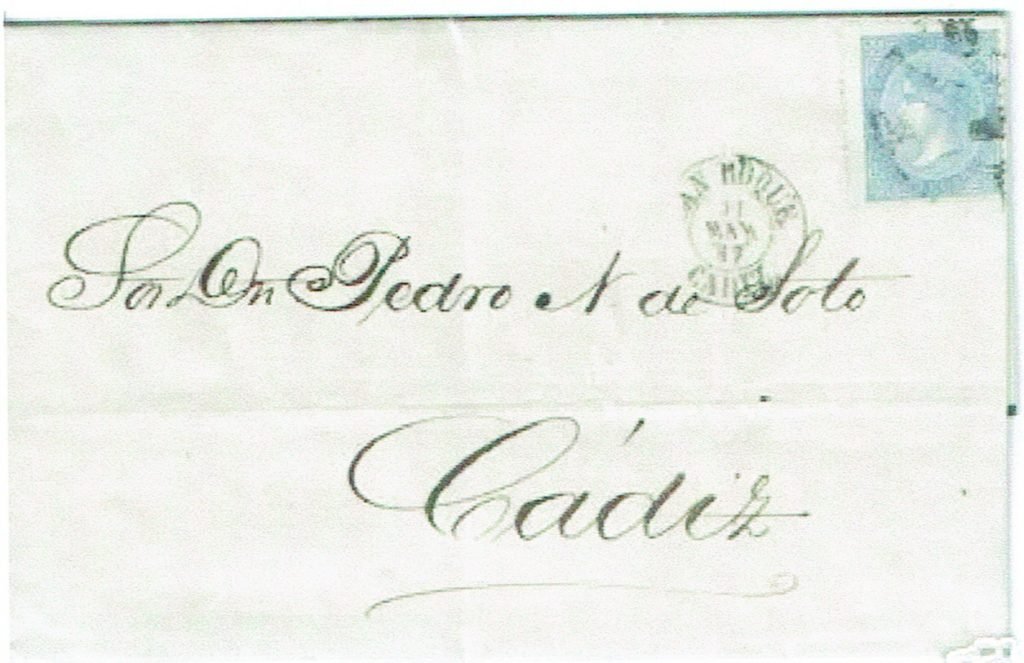 SAN ROQUE
MAR
CADIZ
Sor Dn Pedro N de Soto
Cádiz